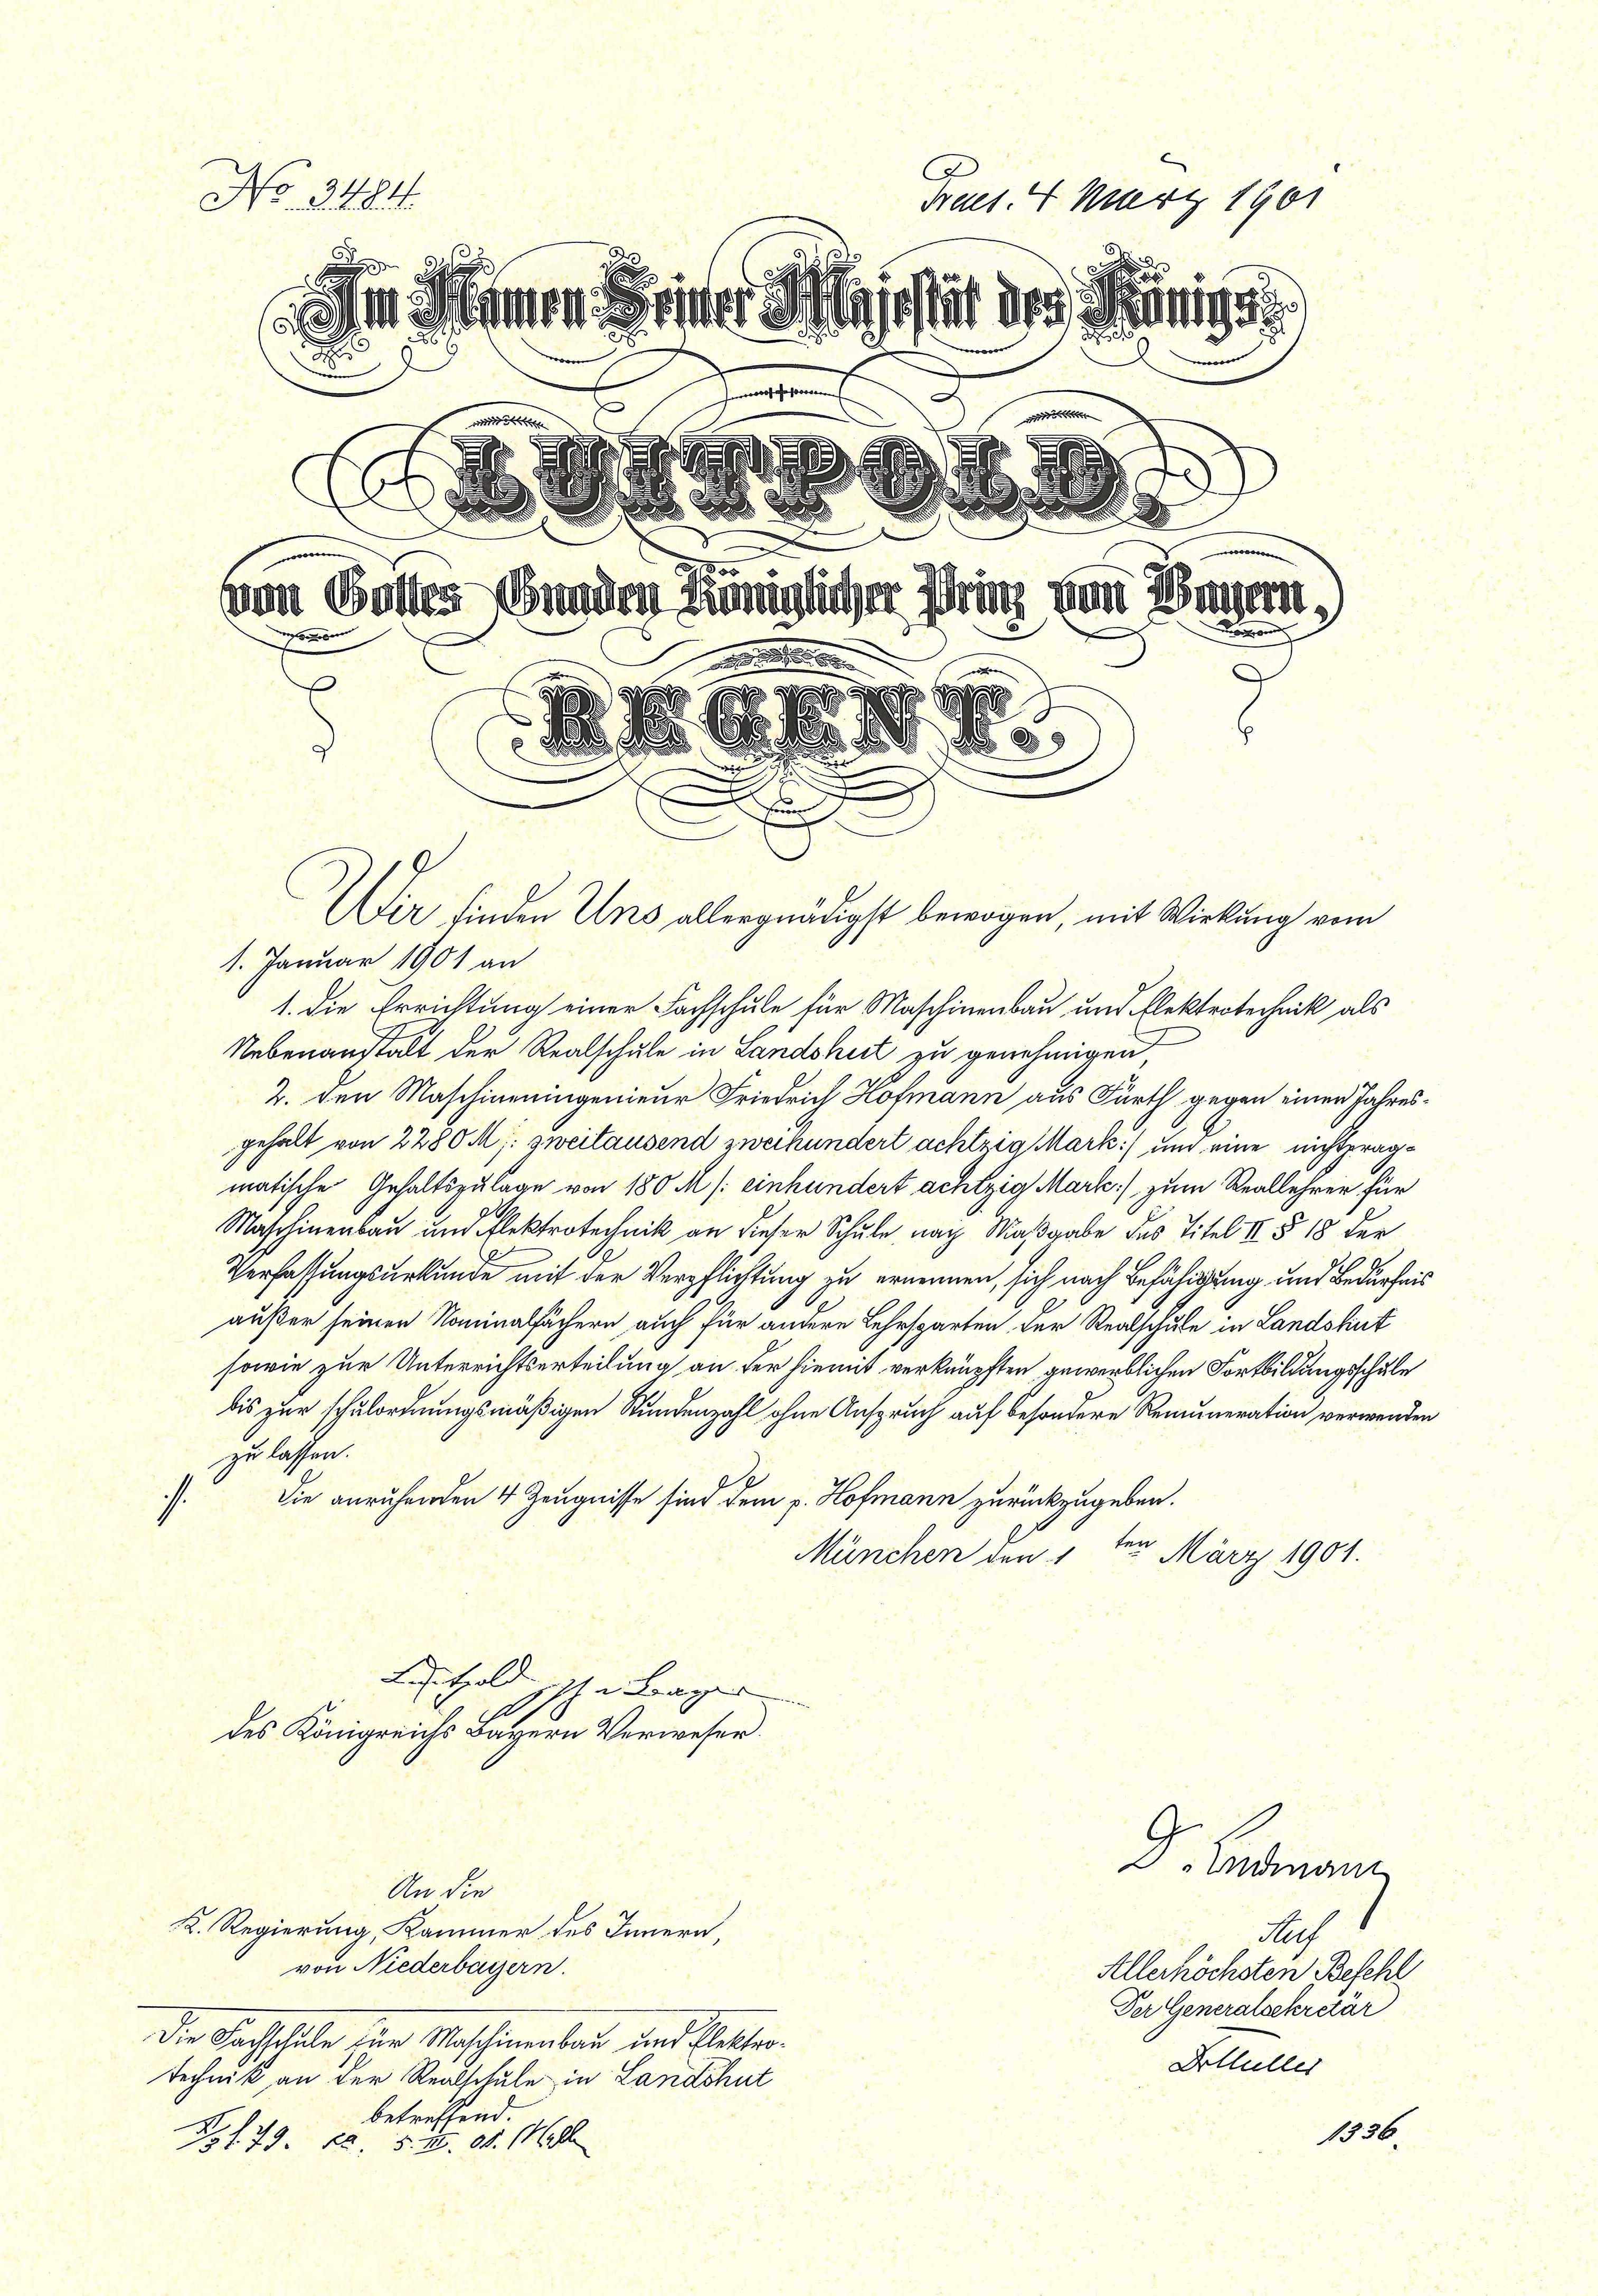 No 3484.
Praes. 4 März 1901
Im Namen Seiner Majestät des Königs.
LUITPOLD,
von Gottes Gnaden Königlicher Prinz von Bayern,
REGENT.
Wir finden Uns allergnädigst bewogen, mit Wirkung vom
1. Januar 1901 an
1. die Errichtung einer Fachschule für Maschinenbau und Elektrotechnik als
Nebenanstalt der Realschule in Landshut zu genehmigen,
2. den Maschineningenieur Friedrich Hofmann aus Fürth gegen einen Jahres-
gehalt von 2280 M /: zweitausend zweihundert achtzig Mark :/ und eine nichtprag-
matische Gehaltszulage von 180 M /: einhundert achtzig Mark :/ zum Reallehrer für
Maschinenbau und Elektrotechnik an dieser Schule nach Maßgabe des Titel II § 18 der
Verfassungsurkunde mit der Verpflichtung zu ernennen, sich nach Befähigung und Bedürfnis
außer seinen Nominalfächern auch für andere Lehrsparten der Realschule in Landshut
sowie zur Unterrichtserteilung an der hiemit verknüpften gewerblichen Fortbildungsschule
bis zur schulordnungsmäßigen Stundenzahl ohne Anspruch auf besondere Remuneration verwenden
zu lassen.
./. Die anruhenden 4 Zeugnisse sind dem p. Hofmann zurückzugeben.
München den 1 ten März 1901.
Luitpold Bayern
des Königreichs Bayern Verweser.
D. Landmann
An die
K. Regierung, Kammer des Innern,
von Niederbayern.
Auf
Allerhöchsten Befehl
Der Generalsekretär
Dr Müller
Die Fachschule für Maschinenbau und Elektro-
technik an der Realschule in Landshut
betreffend.
79. 5. III. 01.
1336.